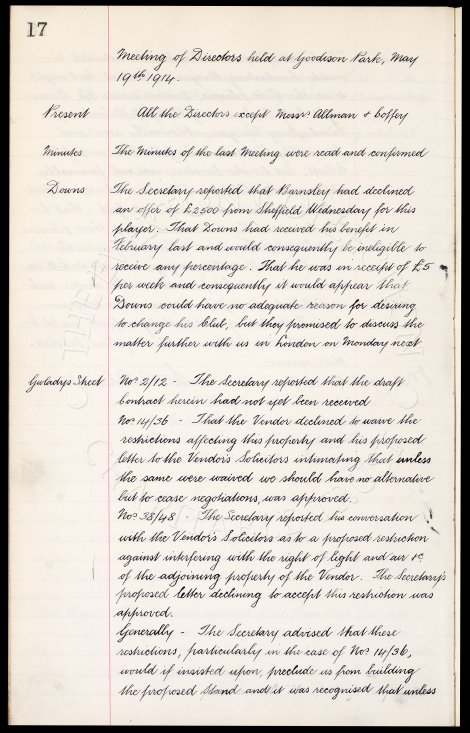 17
Meeting of Directors held at Goodison Park, May
19th 1914.
Present All the Directors except Messrs Allman + Coffey
Minutes The Minutes of the last Meeting were read and confirmed
Downs The Secretary reported that Barnsley had declined
an offer of £2500 from Sheffield Wednesday for this
player. That Downs had received his benefit in
February last and would consequently be ineligible to
receive any percentage. That he was in receipt of £5
per week and consequently it would appear that
Downs could have no adequate reason for desiring
to change his Club, but they promised to discuss the
matter further with us in London on Monday next
Gwladys Street Nos 2/12 - The Secretary reported that the draft
Contract herein had not yet been received
Nos 14/36 - That the Vendor declined to waive the
restrictions affecting this property and his proposed
letter to the Vendor's Solicitors intimating that unless
the same were waived we should have no alternative
but to cease negotiations, was approved.
Nos 38/48 - The Secretary reported his conversation
with the Vendor's Solicitors as to a proposed restriction
against interfering with the right of light and air &c
of the adjoining property of the Vendor. The Secretary's
proposed letter declining to accept this restriction was
approved.
Generally - The Secretary advised that these
restrictions, particularly in the case of Nos 14/36,
would if insisted upon, preclude us from building
the proposed Stand and it was recognised that unless